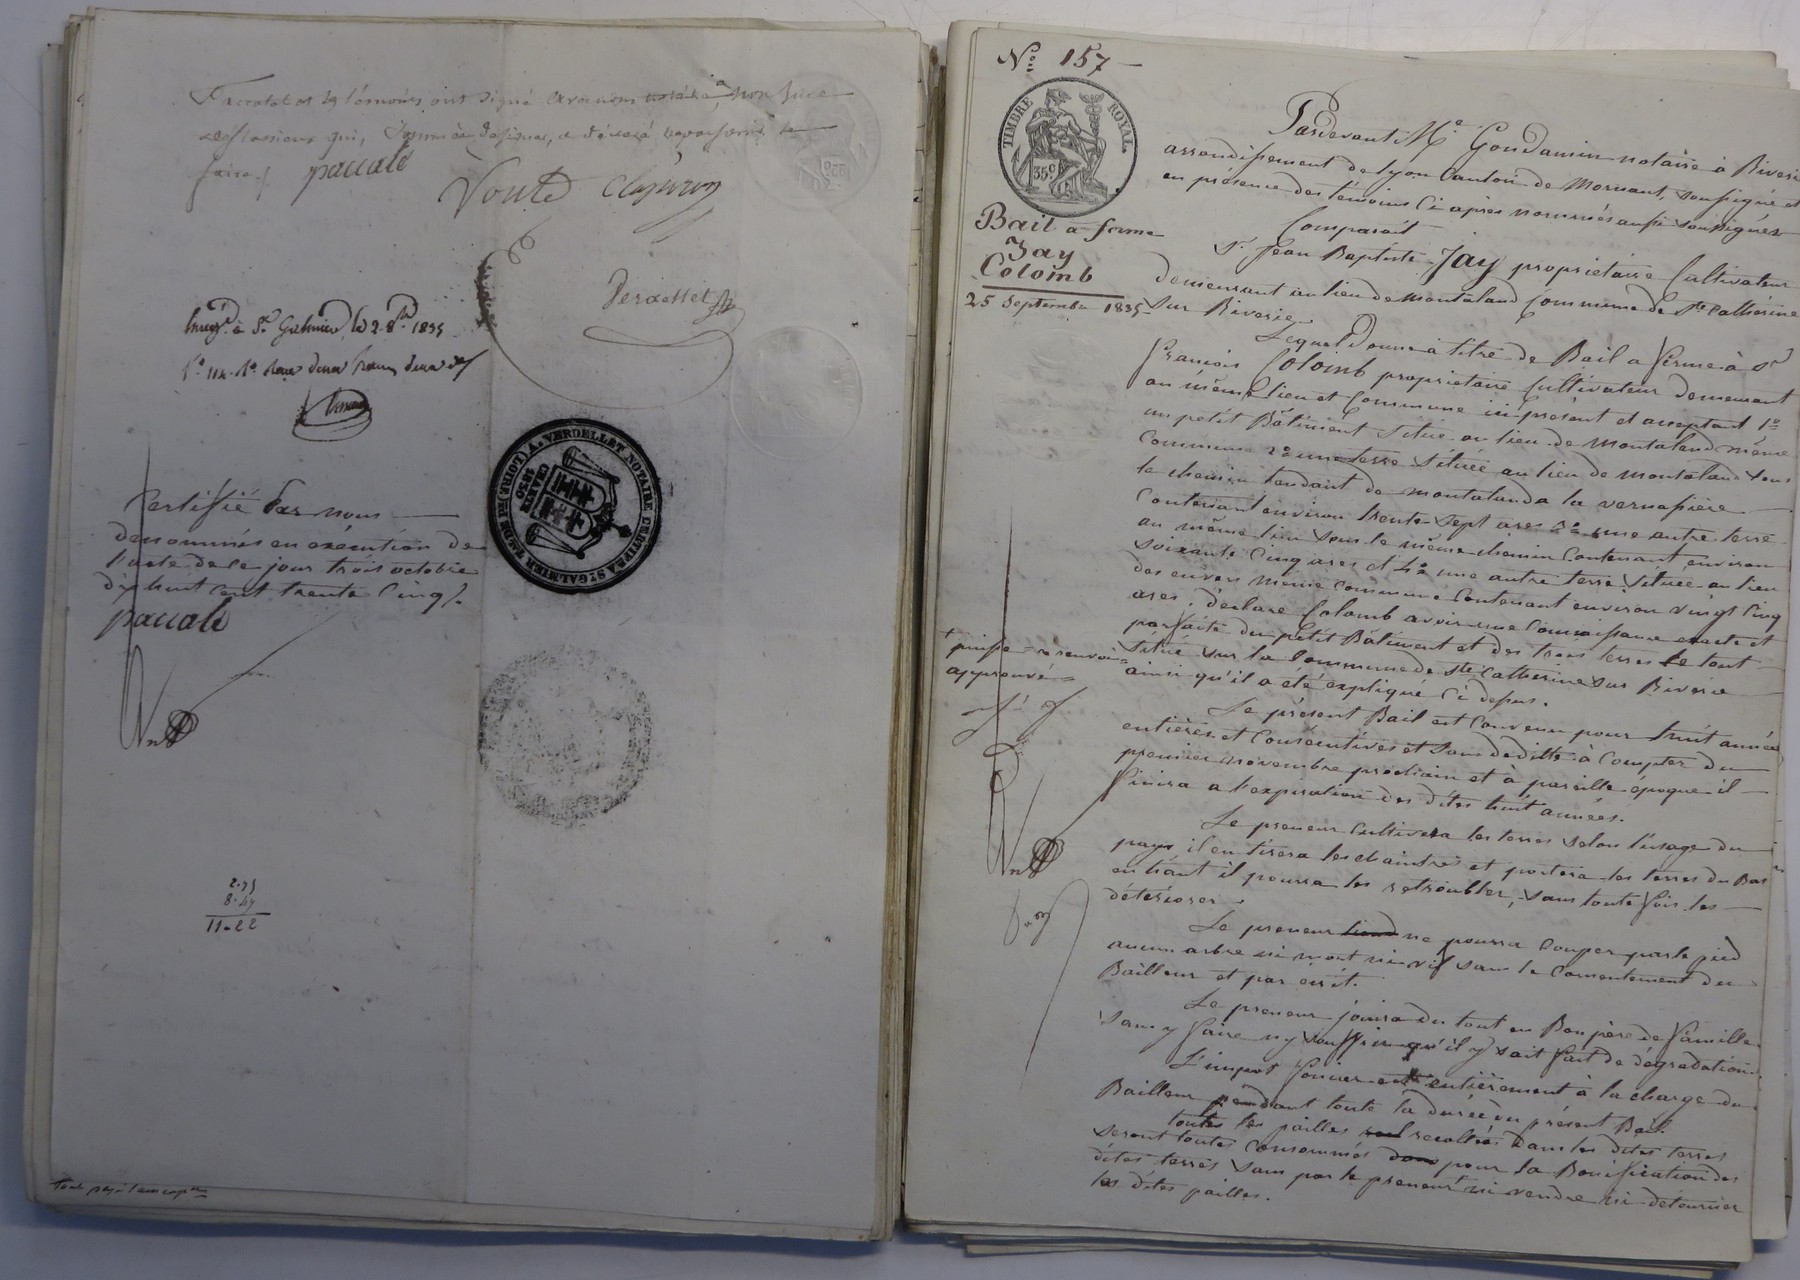 et les témoins ont signé avec nous notaire, non pas
qui, a déclaré ne savoir le
faire./. paccalé
Voute Clapiron
Verdellet
Enreg. à St. Galmier, le 2 8bre 1835
A. VERDELLET NOTAIRE CERTIFR A ST GALMIER
CHARTE
1830
Certifié par nous
dénommés en exécution de
l'acte de ce jour trois octobre
dix huit cent trente cinq /.
paccalé
2-75
8-47
11-22
N° 157
TIMBRE ROYAL.
35c
Bail a ferme
Jay
Colomb
25 Septembre 1835
Pardevant Me. Goudamin notaire à Riverie
arrondissement de Lyon Canton de Mornant, soussigné et
en présence des témoins Ci après nommés aussi soussignés
Comparait
Sr. Jean Baptiste Jay propriétaire Cultivateur
demeurant au lieu de Montaland Commune de Ste. Catherine
Sur Riverie
Lequel donne à titre de Bail a ferme à Sr
françois Colomb propriétaire Cultivateur demeurant
au même lieu et Commune ici présent et acceptant 1°
un petit Bâtiment situé au lieu de Montaland même
Commune 2° une terre située au lieu de Montaland sous
le chemin tendant de Montaland a la vernassière
Contenant environ trente sept ares 3° une autre terre
au même lieu sous le même chemin Contenant environ
soixante Cinq ares et 4° une autre terre située au lieu
des envers même Commune Contenant environ vingt Cinq
ares. déclare Colomb avoir une Connaissance exacte et
parfaite du petit Bâtiment et des trois terres le tout
situé sur la Commune de Ste Catherine sur Riverie
ainsi qu'il a été expliqué Ci dessus.
renvoi
approuvé
Le présent Bail est Convenu pour huit années
entières et Consécutives et sans déditte à Compter du
premier novembre prochain et à pareille époque il
finira a l'expiration des dites huit années.
Le preneur Cultivera les terres selon l'usage du
pays il en tirera les chaintres et portera les terres du Bas
en haut il pourra les retroubler, sans toute fois les
détériorer.
Le preneur ne pourra Couper par le pied
aucun arbre ni mort ni vif sans le Consentement du
Bailleur et par écrit.
Le preneur jouira du tout en Bon père de famille
sans y faire ny souffrir qu'il y soit fait de dégradation.
L'impot foncier est entièrement à la charge du
Bailleur pendant toute la durée du présent Bail.
toutes les pailles recoltées dans les dites terres
seront toutes Consommés pour la Bonification des
dites terres sans par le preneur ni vendre ni détourner
les dites pailles.